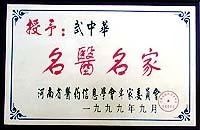 授予：武中華
名醫名家
河南省醫药信息學會專家委員會
一九九九年九月